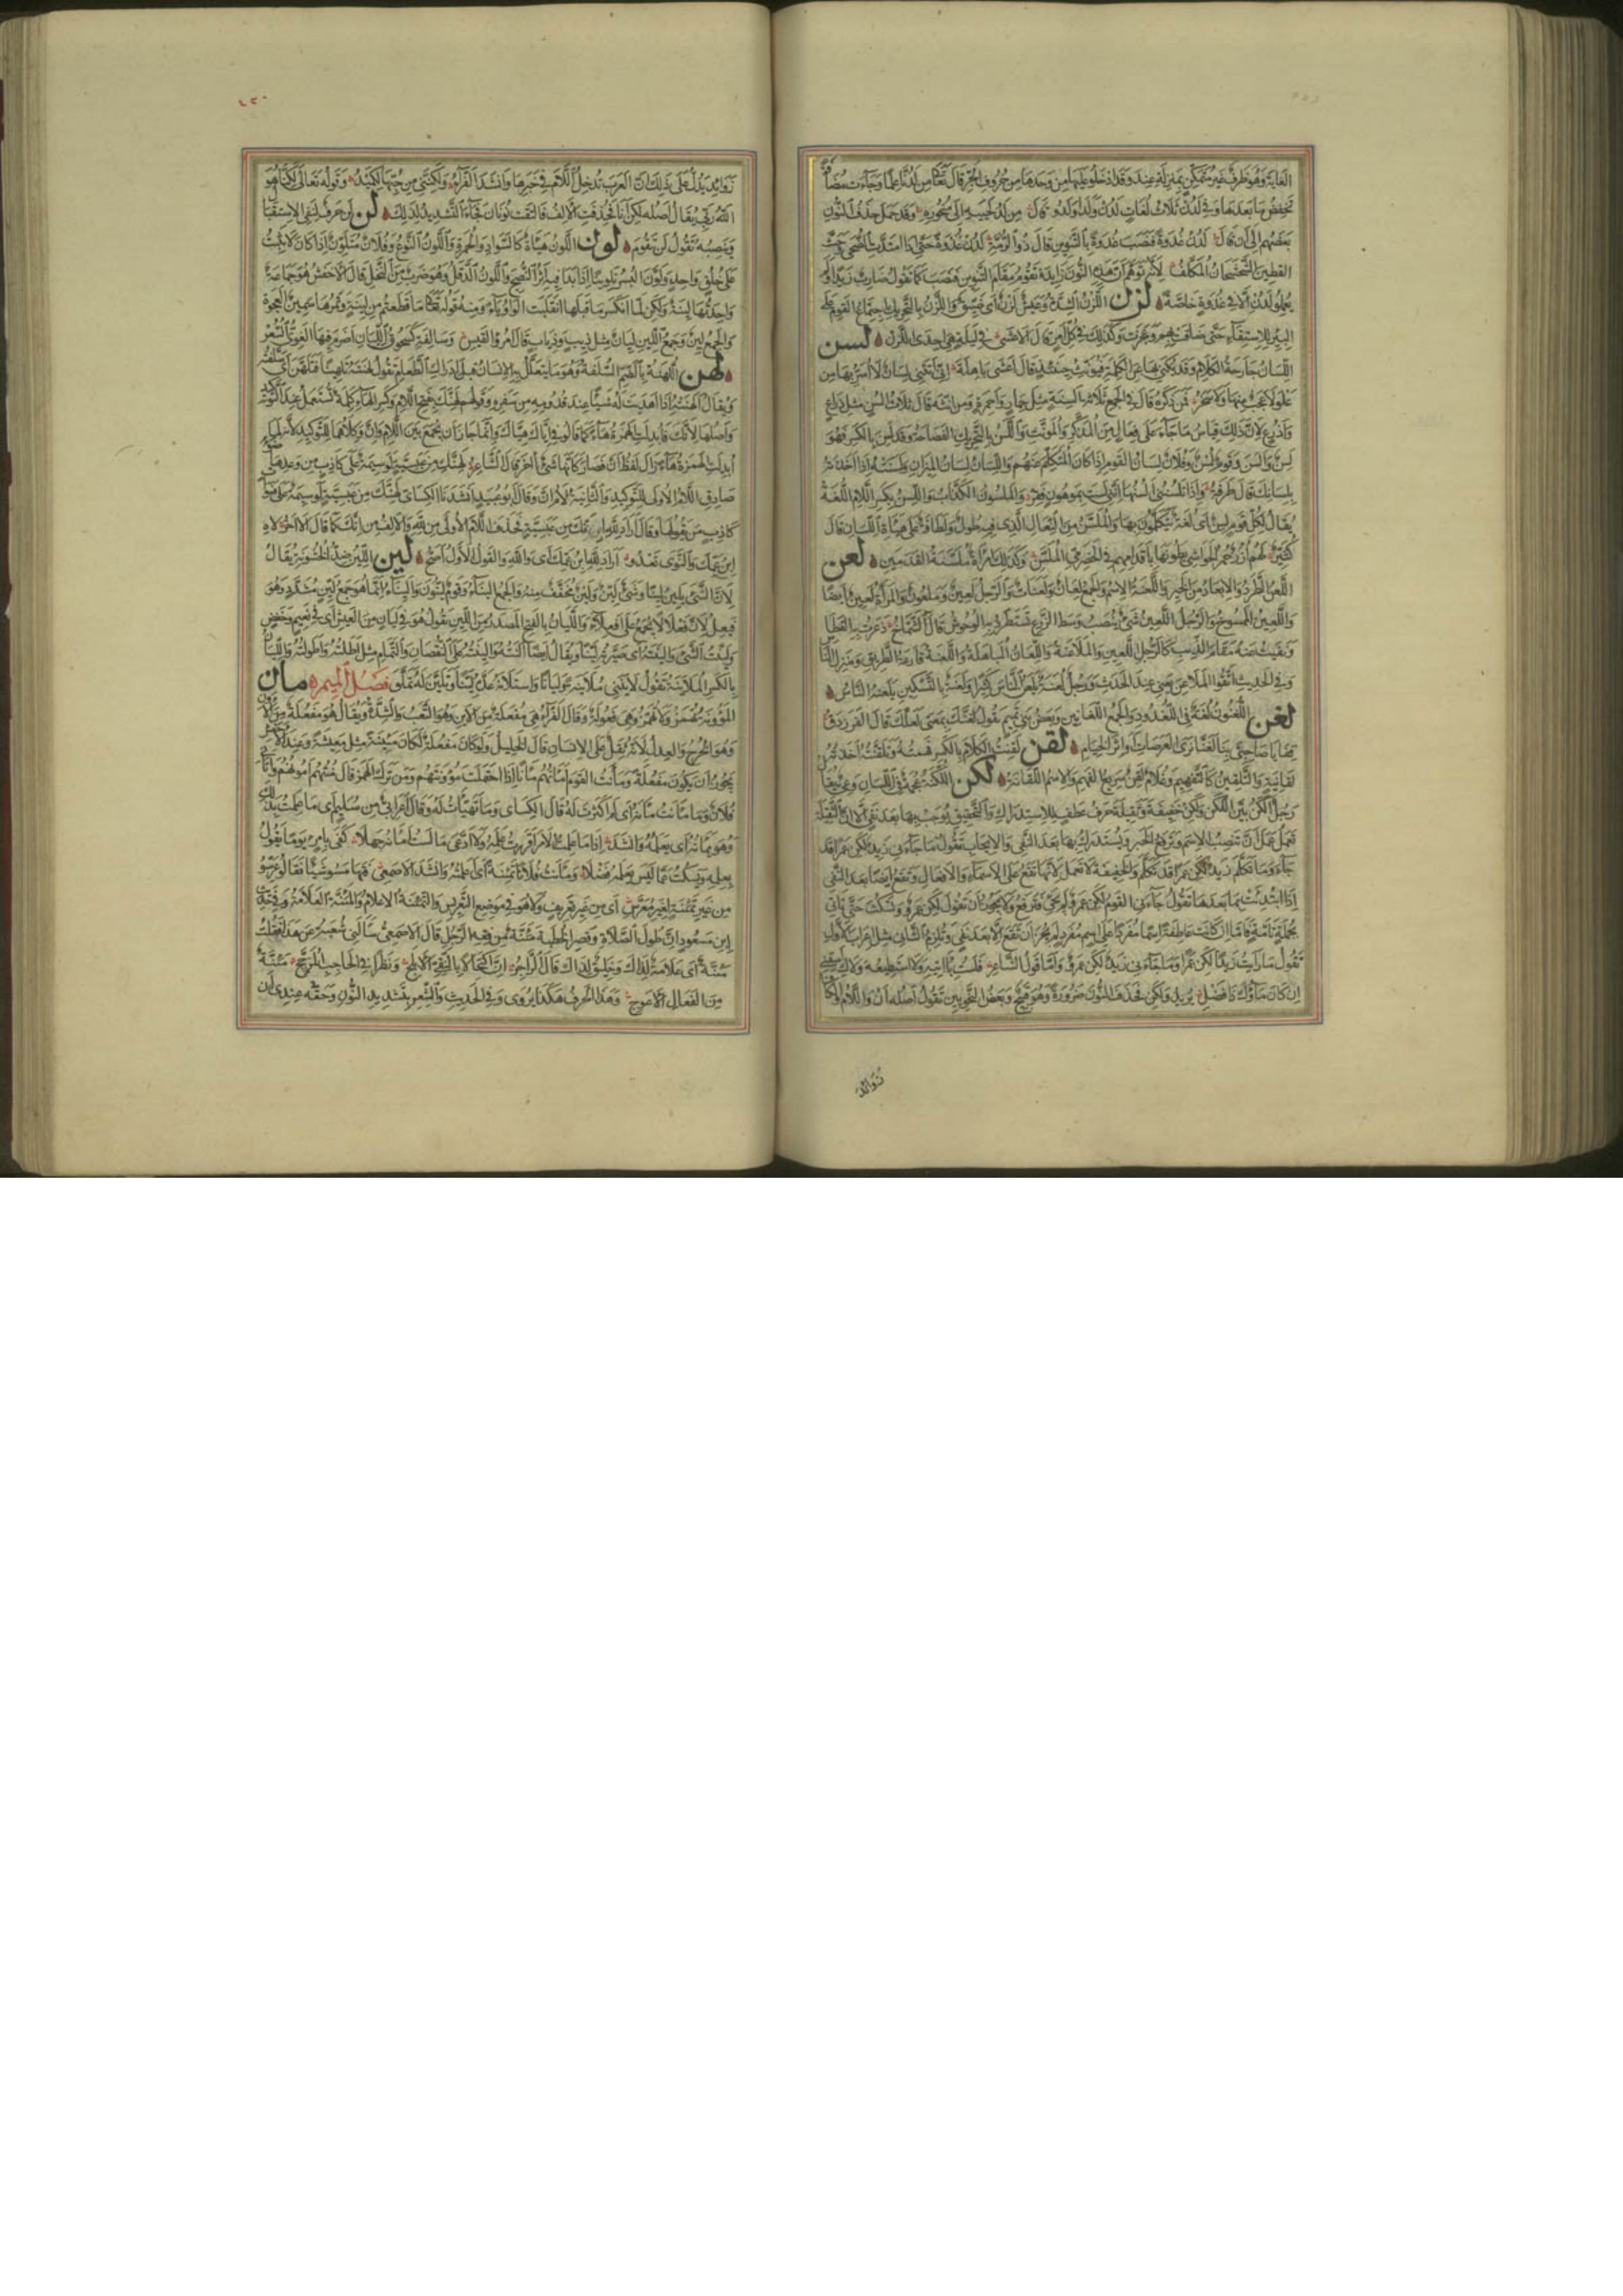 الغاية وهو ظرف غير متمكن بمنزلة عند وقد ادخلوا عليها من وحدها من حروف الجر قال تعالى من لدنا علما وجاءت مضافة
تخفض ما بعدها وفي لدن ثلاث لغات لدن ولدا ولد وقال من لد لحييه الى منحوره وقد حمل حذف النون
بعضهم الى ان قال لدن غدوة فنصب غدوة بالتنوين قال ذو الرمة لدن غدوة حتى اذا امتدت الضحى وحث
القطين الشحشحان المكلف لانه توهم ان هذه النون زايدة تقوم مقام التنوين فنصب كما تقول ضارب زيدا ولم
يعملوا لدن الا في غدوة خاصة لزن اللزن الشدة وعيش لزن اى ضيق واللزن بالتحريك اجتماع القوم على
البير للاستقاء حتى ضاقت بهم وعجزت وكذلك في كل امر قال الاعشى في ليلة هي احدى اللزن لسن
اللسان جارحة الكلام وقد يكنى بها عن الكلمة فيؤنث حينئذ قال اعشى باهلة انى اتتنى لسان لا اسر بها من
علو لا عجب منها ولا سخر فمن ذكره قال في الجمع ثلاثة السنة مثل حمار واحمرة ومن انثه قال ثلاث السن مثل ذراع
واذرع لان ذلك قياس ما جاء على فعال من المذكر والمونث واللسن بالتحريك الفصاحة وقد لسن بالكسر فهو
لسن والسن وقوم لسن وفلان لسان القوم اذا كان المتكلم عنهم واللسان لسان الميزان ولسنته اذا اخذته
بلسانك قال طرفة واذا تلسننى السنها اننى لست بموهون فقر والملسون الكذاب واللسن بكسر اللام اللغة
يقال لكل قوم لسن اى لغة يتكلمون بها والملسن من النعال الذى فيه طول ولطافة على هيأة اللسان قال
كثير لهم ازر حمر الحواشى يطونها باقدامهم في الحضرمى الملسن وكذلك امرأة ملسنة القدمين لعن
اللعن الطرد والابعاد من الخير واللعنة الاسم والجمع لعان ولعنات والرجل لعين وملعون والمرأة لعين ايضا
واللعين الممسوخ والرجل اللعين شىء ينصب وسط الزرع تستطرد به الوحوش قال الشماخ ذعرت به القطا
ونفيت عنه مقام الذيب كالرجل اللعين والملاعنة واللعان المباهلة والملعنة قارعة الطريق ومنزل الناس
وفي الحديث اتقوا الملاعن يعنى عند الحدث ورجل لعنة يلعن الناس كثيرا ولعنة بالتسكين يلعنه الناس
لغن اللغنون لغة في اللغدود والجمع اللغانين وبعض بنى تميم يقول لغنك بمعنى لعلك قال الفرزدق
قفا يا صاحبى بنا لغنا نرى العرصات او اثر الخيام لقن لقنت الكلام بالكسر فهمته وتلقنته اخذته
لقانية والتلقين كالتفهيم وغلام لقن سريع الفهم والاسم اللقانة لكن اللكنة عجمة في اللسان وعى يقال
رجل الكن بين اللكن ولكن خفيفة وثقيلة حرف عطف للاستدراك والتحقيق يوجب بها بعد نفى الا ان الثقيلة
تعمل عمل ان تنصب الاسم وترفع الخبر ويستدرك بها بعد النفى والايجاب تقول ما جاءنى زيد لكن عمرا قد
جاء وما تكلم زيد لكن عمرا قد تكلم والخفيفة لا تعمل لانها تقع على الاسماء والافعال وتقع ايضا بعد النفى
اذا ابتدئت بما بعدها تقول جاءنى القوم لكن عمرو لم يجئ فترفع ولا يجوز ان تقول لكن عمرو وتسكت حتى تاتى
بجملة تامة فاما ان كانت عاطفة اسما مفردا على اسم مفرد لم يجز ان تقع الا بعد نفى وتلزم الثانى مثل اعراب الاول
تقول ما رأيت زيدا لكن عمرا وما جاءنى زيد لكن عمرو واما قول الشاعر فلست بآتيه ولا استطيعه ولاك اسقنى
ان كان ماؤك ذا فضل يريد ولكن فحذف النون ضرورة وهو قبيح وبعض النحويين تقول اصله ان واللام والكاف
زوايد
٤٢٠
زوايد يدل على ذلك ان العرب تدخل اللام في خبرها وانشد الفراء ولكننى من حبها لكميد وقوله تعالى لكنا هو
الله ربى يقال اصله لكن انا فحذفت الالف فالتقت نونان فجاء التشديد لذلك لن لن حرف لنفى الاستقبال
وينصب به تقول لن تقوم لون اللون هيأة كالسواد والحمرة واللون النوع وفلان متلون اذا كان لا يثبت
على خلق واحد ولون البسر تلوينا اذا بدا فيه اثر النضج واللون الدقل وهو ضرب من النخل قال الاخفش هو جماعة
واحدتها لينة ولكن لما انكسر ما قبلها انقلبت الواو ياء ومنه قوله تعالى ما قطعتم من لينة وتمرها سمين العجوة
والجمع لين وجمع اللين ليان مثل ذيب وذياب قال امرؤ القيس وسالفة كسحوق الليان اضرم فيها الغوى السعر
لهن اللهنة بالضم السلفة وهو ما يتعلل به الانسان قبل ادراك الطعام تقول لهنته تلهينا فتلهن اى سلفته
ويقال الهنته اذا اهديت له شيئا عند قدومه من سفره وقولهم لهنك بفتح اللام وكسر الهاء كلمة تستعمل عند التوكيد
واصلها لانك فابدلت الهمزة هاء كما قالوا في اياك هياك وانما جاز ان يجمع بين اللام وان وكلاهما للتوكيد لانه لما
ابدلت الهمزة هاء زال لفظ ان فصار كانها شىء آخر قال الشاعر لهنك من عبسية لوسيمة على كاذب من وعدها ضوء
صادق اللام الاولى للتوكيد والثانية لام ان وقال ابو عبيد انشدنا الكسائى لهنك من عبسية لوسيمة على هنوات
كاذب من يقولها وقال اراد لله انك من عبسية فحذف اللام الاولى من لله والالف من انك كما قال الآخر لاه
ابن عمك والنوى تعدو اراد لله ابن عمك اى والله والقول الاول اصح لين اللين ضد الخشونة يقال
لان الشىء يلين لينا وشىء لين ولين مخفف منه والجمع اليناء وقوم لينون واليناء انما هو جمع لين مشدد وهو
فيعل لان فعلا لا يجمع على افعلاء والليان بالفتح المصدر من اللين تقول هو في ليان من العيش اى في نعيم وخفض
ولينت الشىء والينته اى صيرته لينا ويقال ايضا النته والينته على النقصان والتمام مثل اطلته واطولته والليان
بالكسر الملاينة تقول لاينى ملاينة وليانا واستلانه عده لينا وتلين له تملق فصل الميم مان
المؤونة تهمز ولا تهمز وهى فعولة وقال الفراء هى مفعلة من الاين وهو التعب والشدة ويقال هو مفعلة من الاون
وهو الخرج والعدل لانه ثقل على الانسان قال الخليل ولو كان مفعلة لكان مئينة مثل معيشة وعند الاخفش
يجوز ان يكون مفعلة ومأنت القوم امأنهم مأنا اذا احتملت مؤونتهم ومن ترك الهمز قال منتهم امونهم واتانى
فلان وما مأنت مأنه اى لم اكترث له قال الكسائى وما تهيأت له وقال اعرابى من سليم اى ما علمت بذلك
وهو يمأنه اى يعلمه وانشد اذا ما علمت الامر اقررت علمه ولا ادعى ما لست امأنه جهلا كفى بامرئ يوما يقول
بعلمه ويسكت عما ليس يعلمه فضلا ومأنت فلانا تمئنة اى اعلمته وانشد الاصمعى فتهامسوا شيئا فقالوا عرسوا
من غير تمئنة لغير معرس اى من غير تعريف ولا هو في موضع التعريس والتمئنة الاعلام والمئنة العلامة وفي حديث
ابن مسعود ان طول الصلاة وقصر الخطبة مئنة من فقه الرجل قال الاصمعى سألنى شعبة عن هذا فقلت
مئنة اى علامة لذاك وخليق لذاك قال الراجز ان اكتحالا بالنقى الابلج ونظرا في الحاجب المزجج مئنة
من الفعال الاعوج وهذا الحرف هكذا يروى وفي الحديث والشعر بتشديد النون وحقه عندى ان